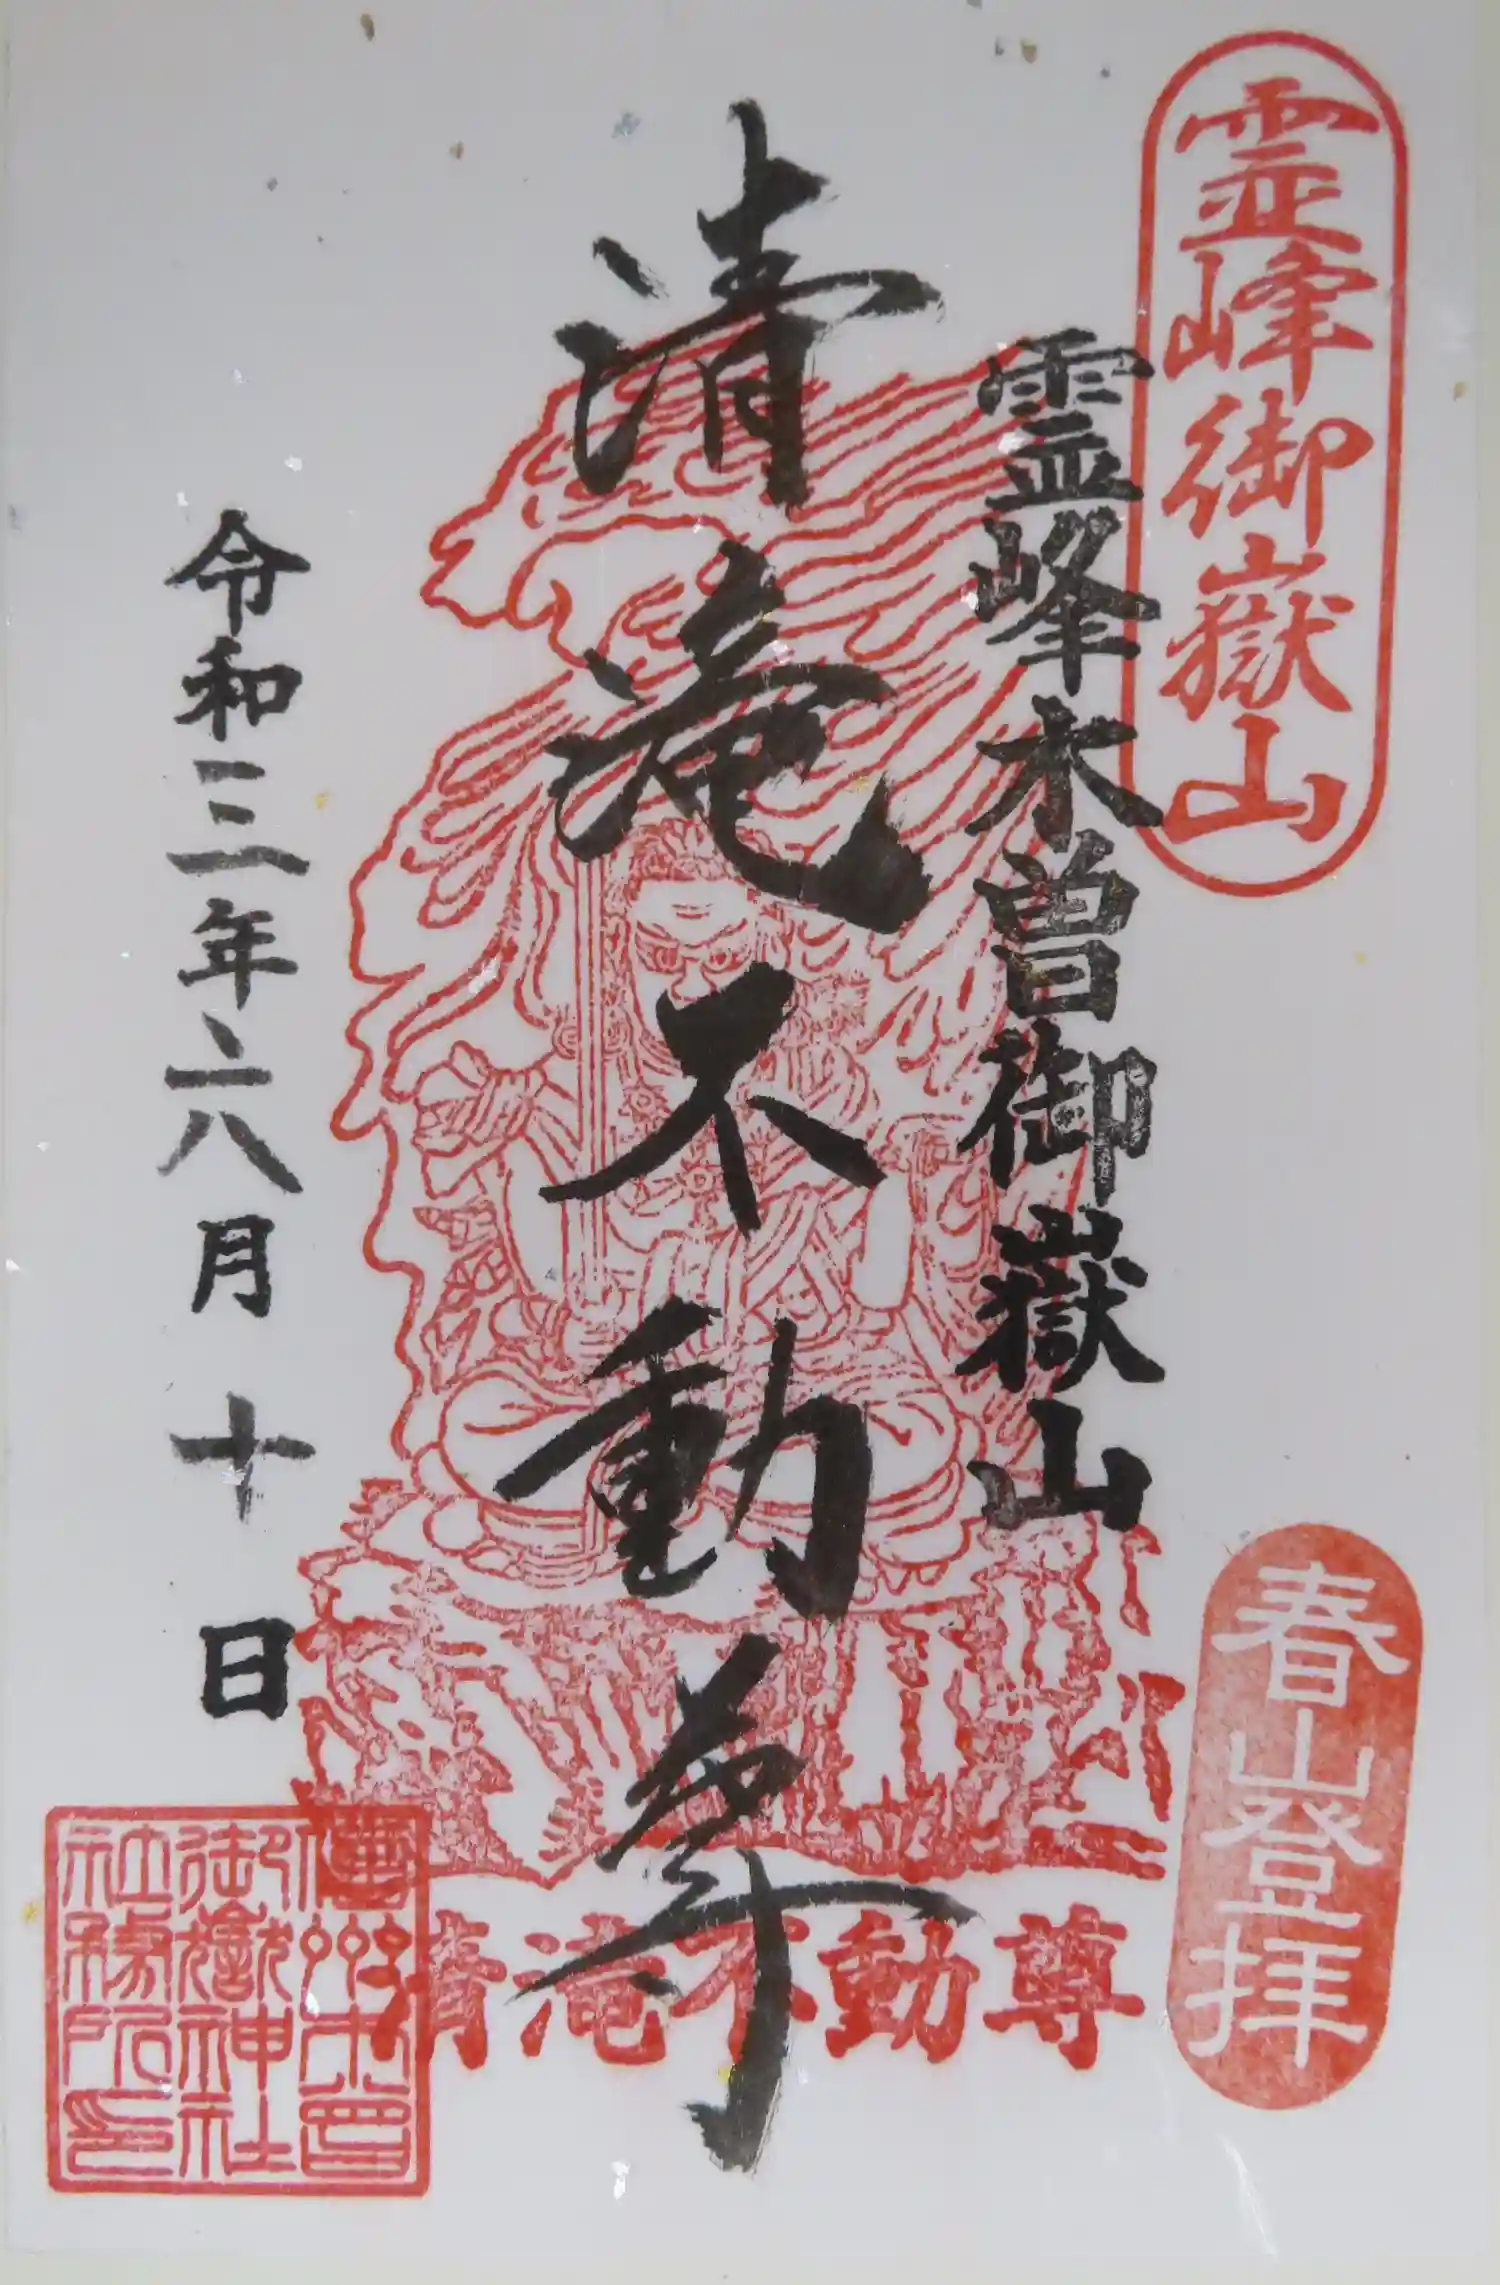 霊峰御嶽山
霊峰木曽御嶽山
清滝不動尊
令和三年六月十日
春山登拝
清滝不動尊
御嶽神社
社務所印